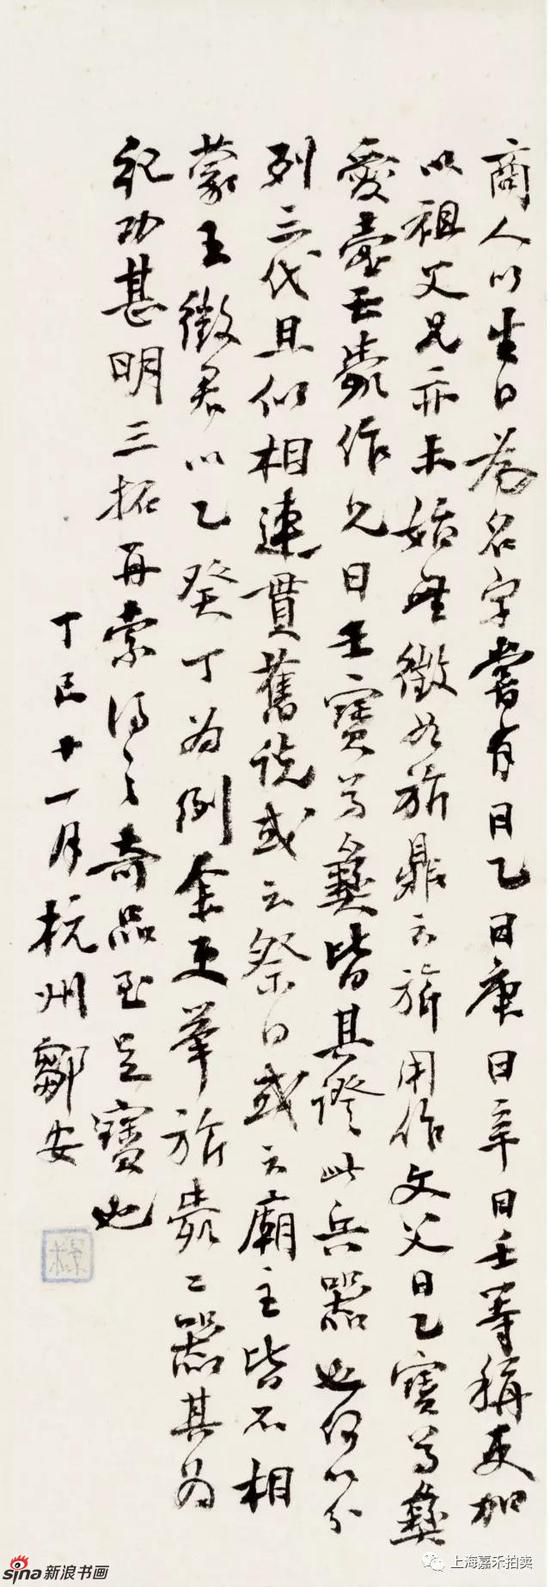 商人以生日為名字嘗有日乙日庚日辛日壬等稱更加
以祖父兄亦未始無徵如旂鼎云旂用作文父日乙寶尊彝
愛壺云作兄日壬寶尊彝皆其證此兵器也何以分
列三代且似相連貫舊說或云祭日或云廟主皆不相
蒙王徵君以乙癸丁為例余更舉旂二器其為
紀功甚明三拓再索得之奇品至足寶也
丁巳十一月杭州鄒安
sina新浪书画
上海嘉禾拍卖